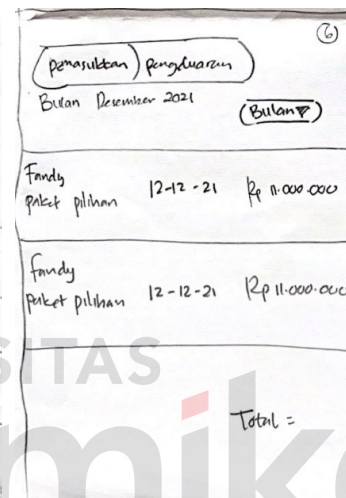 6
Pemasukkan Pengeluaran
Bulan Desember 2021
Bulan
Fandy
paket pilihan 12-12-21 Rp 11.000.000
Fandy
paket pilihan 12-12-21 Rp 11.000.000
Total =
SITAS
mika